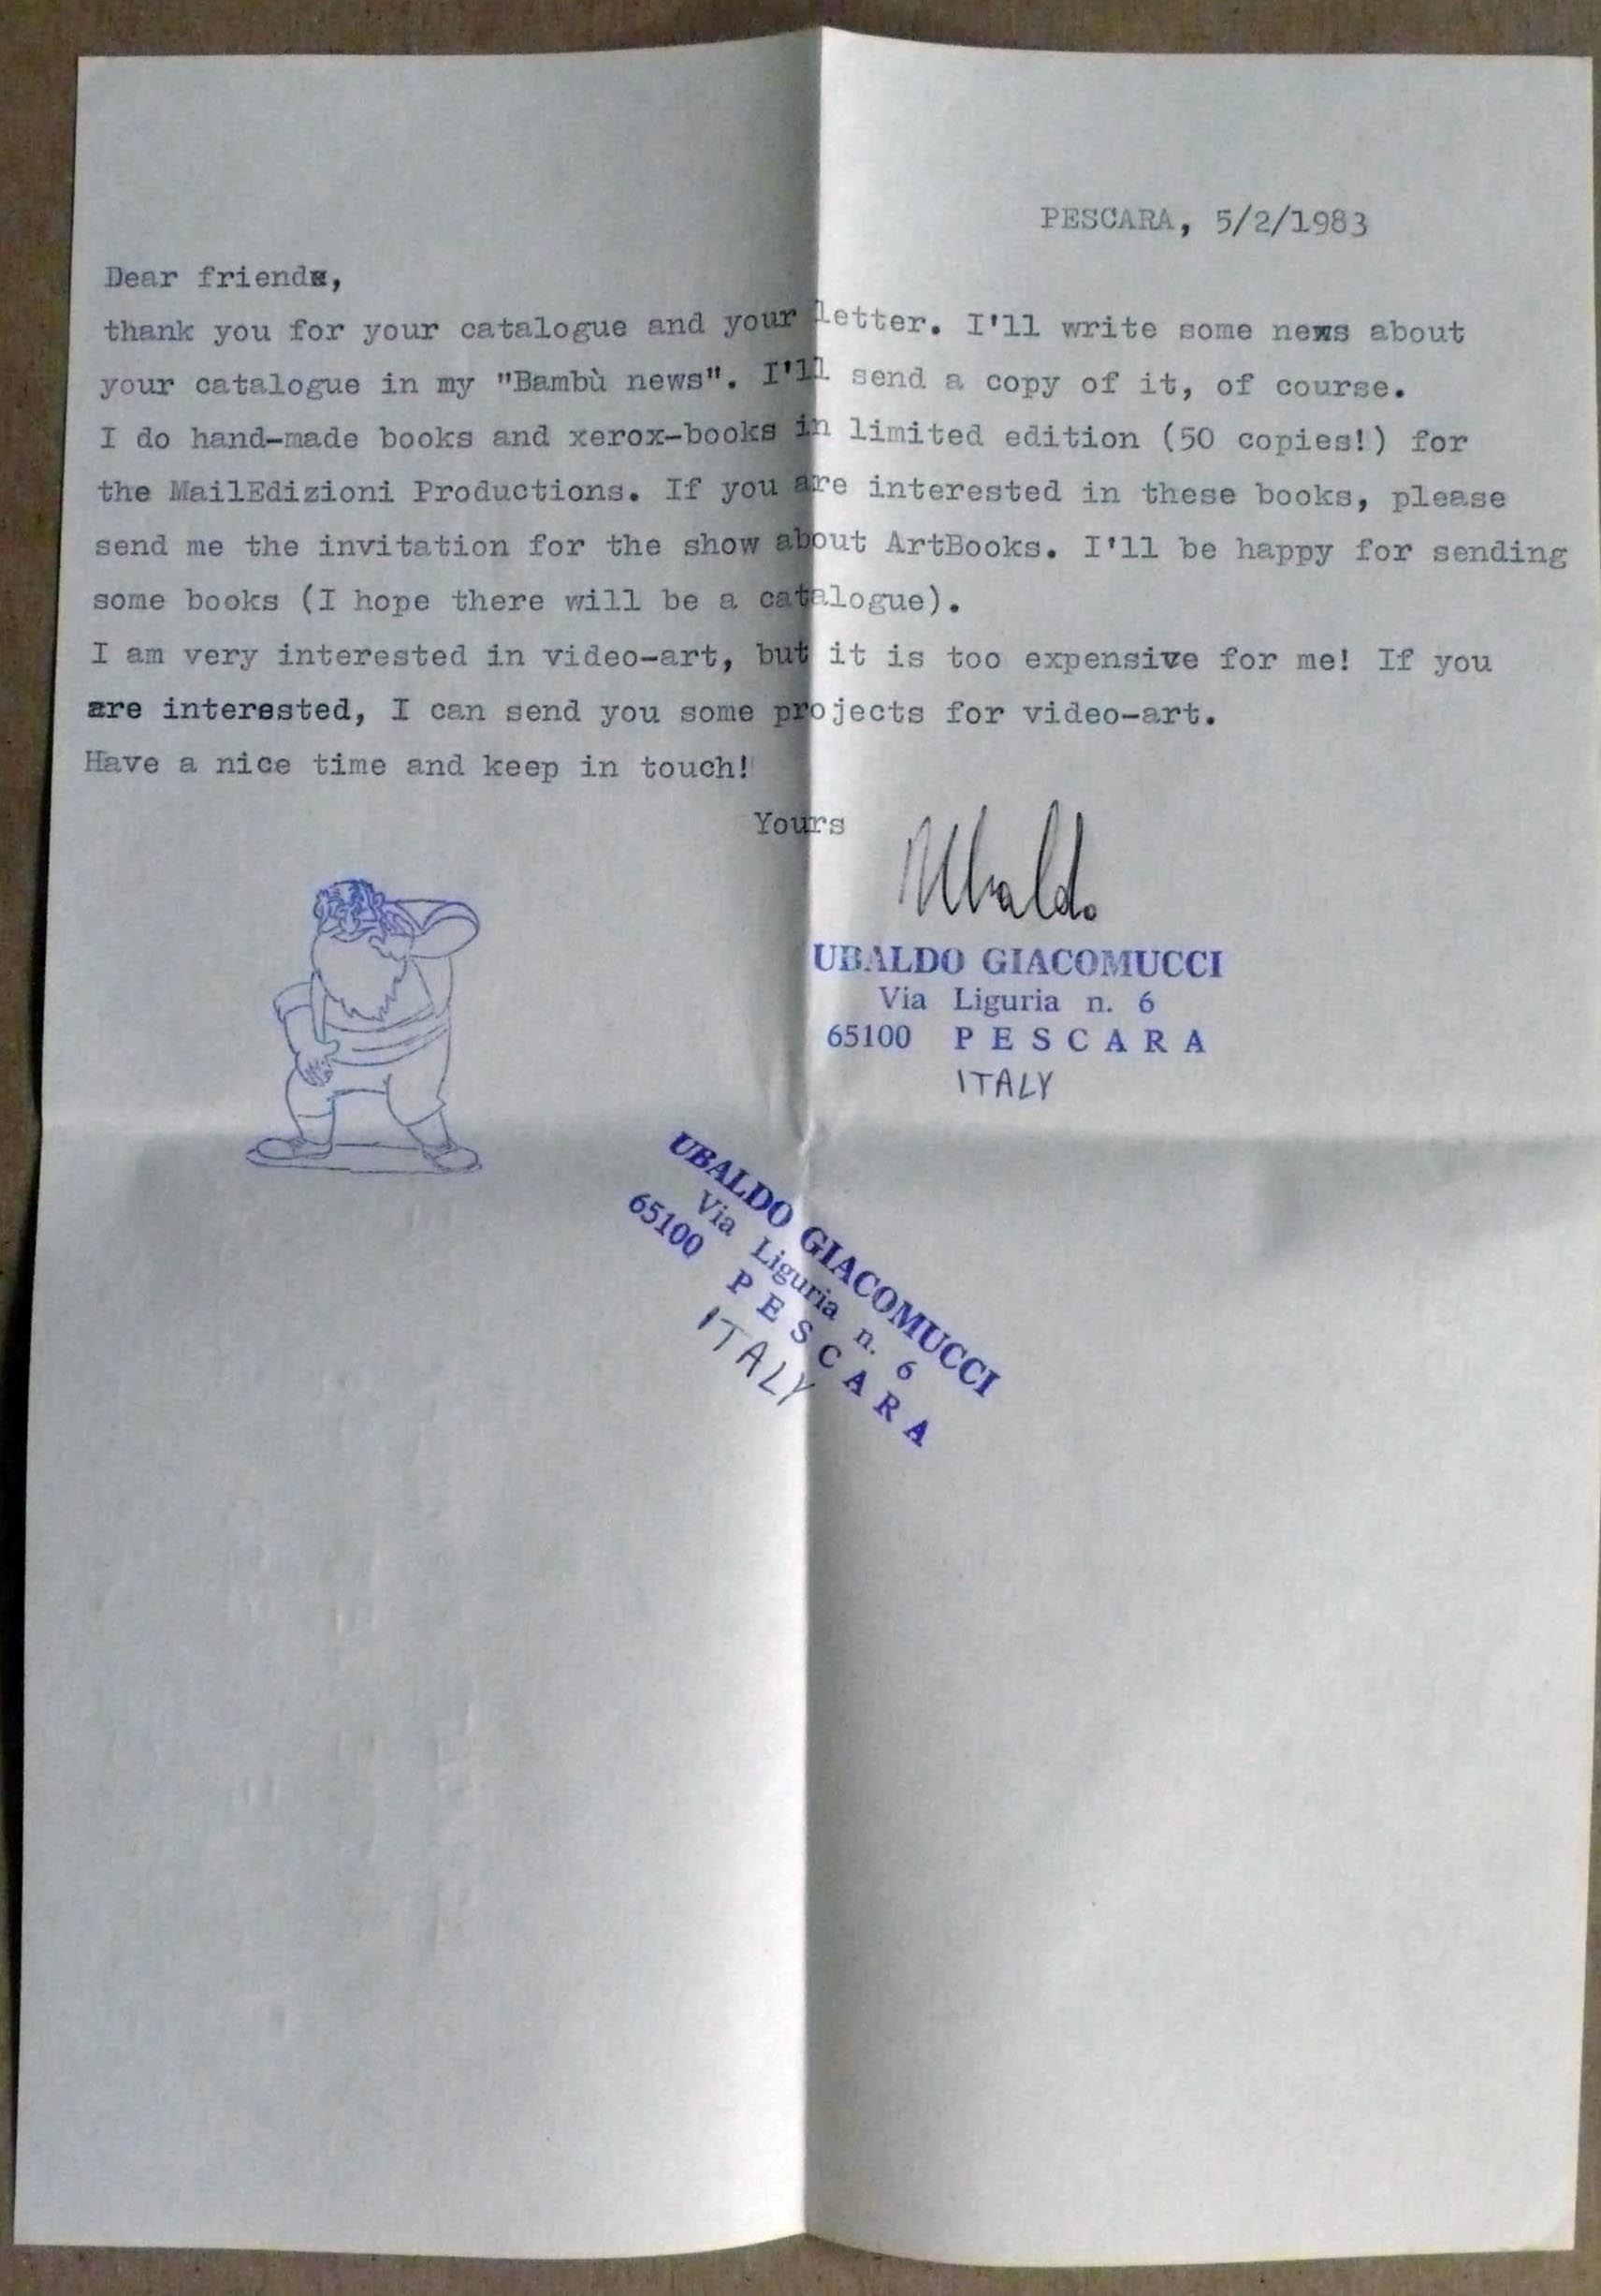 PESCARA, 5/2/1983
Dear friends,
thank you for your catalogue and your letter. I'll write some news about
your catalogue in my "Bambù news". I'll send a copy of it, of course.
I do hand-made books and xerox-books in limited edition (50 copies!) for
the MailEdizioni Productions. If you are interested in these books, please
send me the invitation for the show about ArtBooks. I'll be happy for sending
some books (I hope there will be a catalogue).
I am very interested in video-art, but it is too expensive for me! If you
are interested, I can send you some projects for video-art.
Have a nice time and keep in touch!
Yours
Ubaldo
UBALDO GIACOMUCCI
Via Liguria n. 6
65100 PESCARA
ITALY
UBALDO GIACOMUCCI
Via Liguria n. 6
65100 PESCARA
ITALY